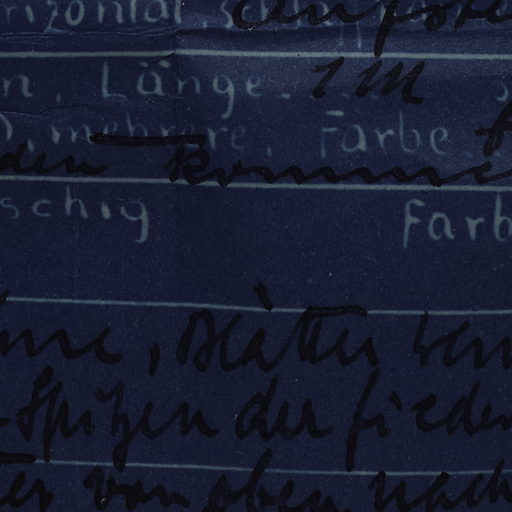 rizontal, schlapp
1 M
n, Länge
), mehrere, Farbe
den kommen
schig Farb
me, Blätter
Spitzen der fieder
von oben nach